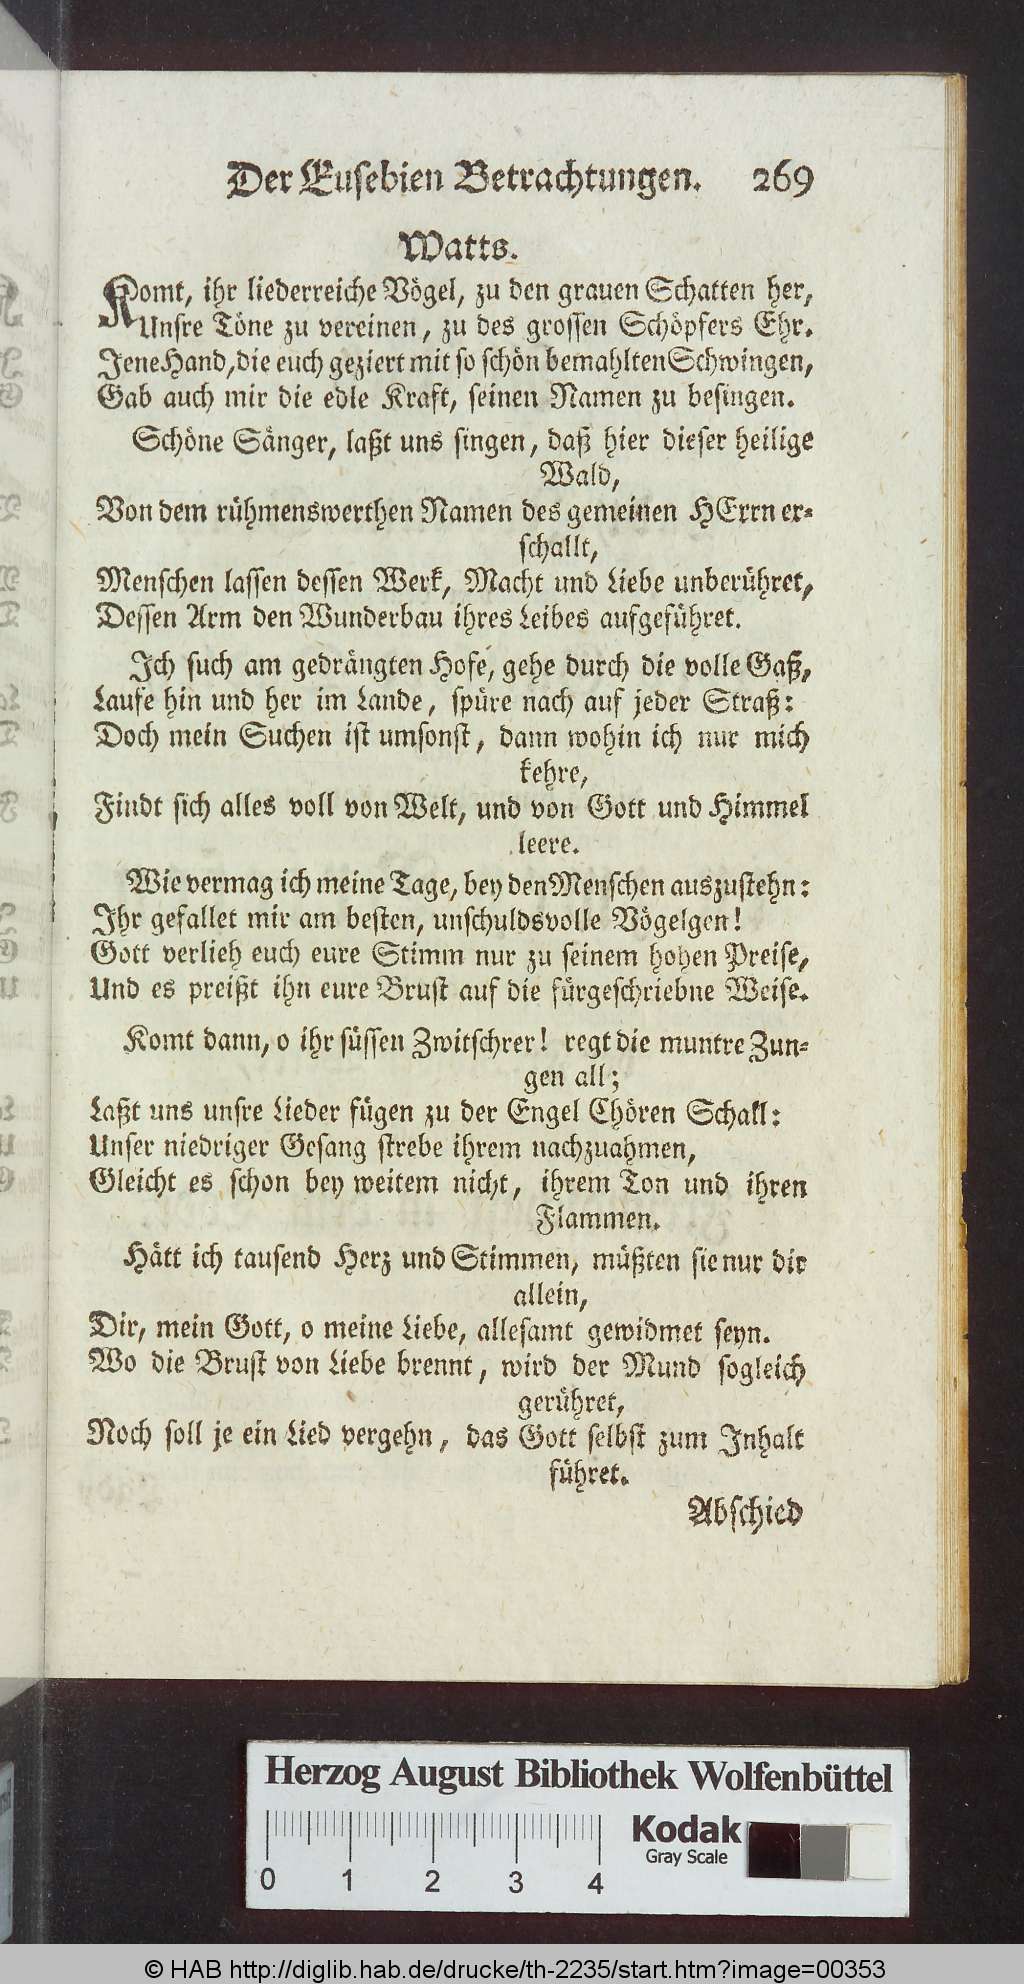 Der Eusebien Betrachtungen. 269
Watts.
Komt, ihr liederreiche Vögel, zu den grauen Schatten her,
Unsre Töne zu vereinen, zu des grossen Schöpfers Ehr.
Jene Hand, die euch geziert mit so schön bemahlten Schwingen,
Gab auch mir die edle Kraft, seinen Namen zu besingen.
Schöne Sänger, laßt uns singen, daß hier dieser heilige
Wald,
Von dem rühmenswerthen Namen des gemeinen HErrn er-
schallt,
Menschen lassen dessen Werk, Macht und Liebe unberühret,
Dessen Arm den Wunderbau ihres Leibes aufgeführet.
Ich such am gedrängten Hofe, gehe durch die volle Gaß,
Laufe hin und her im Lande, spüre nach auf jeder Straß:
Doch mein Suchen ist umsonst, dann wohin ich nur mich
kehre,
Findt sich alles voll von Welt, und von Gott und Himmel
leere.
Wie vermag ich meine Tage, bey den Menschen auszustehn:
Ihr gefallet mir am besten, unschuldsvolle Vögelgen!
Gott verlieh euch eure Stimm nur zu seinem hohen Preise,
Und es preißt ihn eure Brust auf die fürgeschriebne Weise.
Komt dann, o ihr süssen Zwitschrer! regt die muntre Zun-
gen all;
Laßt uns unsre Lieder fügen zu der Engel Chören Schall:
Unser niedriger Gesang strebe ihrem nachzuahmen,
Gleicht es schon bey weitem nicht, ihrem Ton und ihren
Flammen.
Hätt ich tausend Herz und Stimmen, müßten sie nur dir
allein,
Dir, mein Gott, o meine Liebe, allesamt gewidmet seyn.
Wo die Brust von Liebe brennt, wird der Mund sogleich
gerühret,
Noch soll je ein Lied vergehn, das Gott selbst zum Inhalt
führet.
Abschied
Herzog August Bibliothek Wolfenbüttel
Kodak
Gray Scale
0 1 2 3 4
© HAB http://diglib.hab.de/drucke/th-2235/start.htm?image=00353